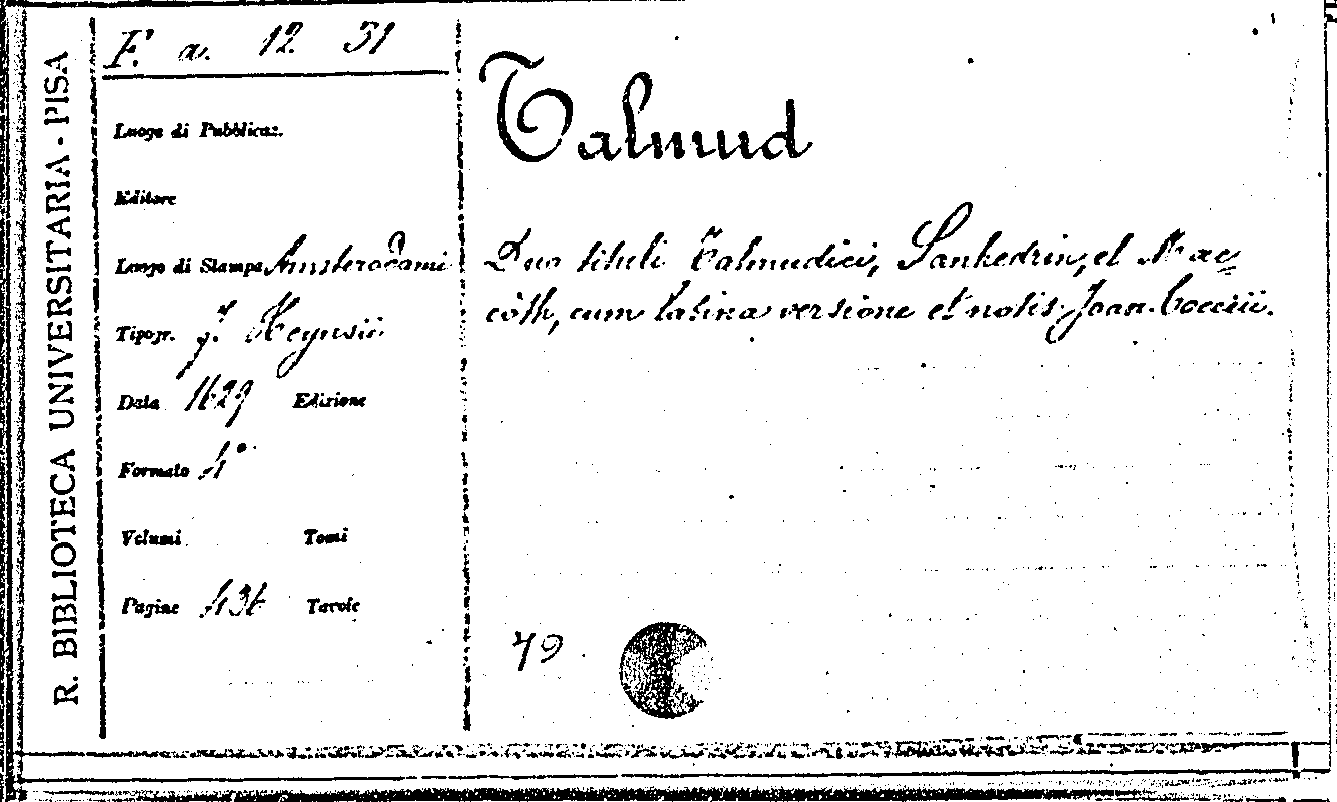 R. BIBLIOTECA UNIVERSITARIA - PISA
F. a. 12 31
Luogo di Pubblicaz.
Editore
Luogo di Stampa Amsterodami
Tipogr. J. Heynsii
Data 1629 Edizione
Formato 4°
Volumi Tomi
Pagine 436 Tavole
Talmud
Duo tituli Talmudici, Sanhedrin, et Mac=
côth, cum latina versione et notis Joan. Cocceii.
79